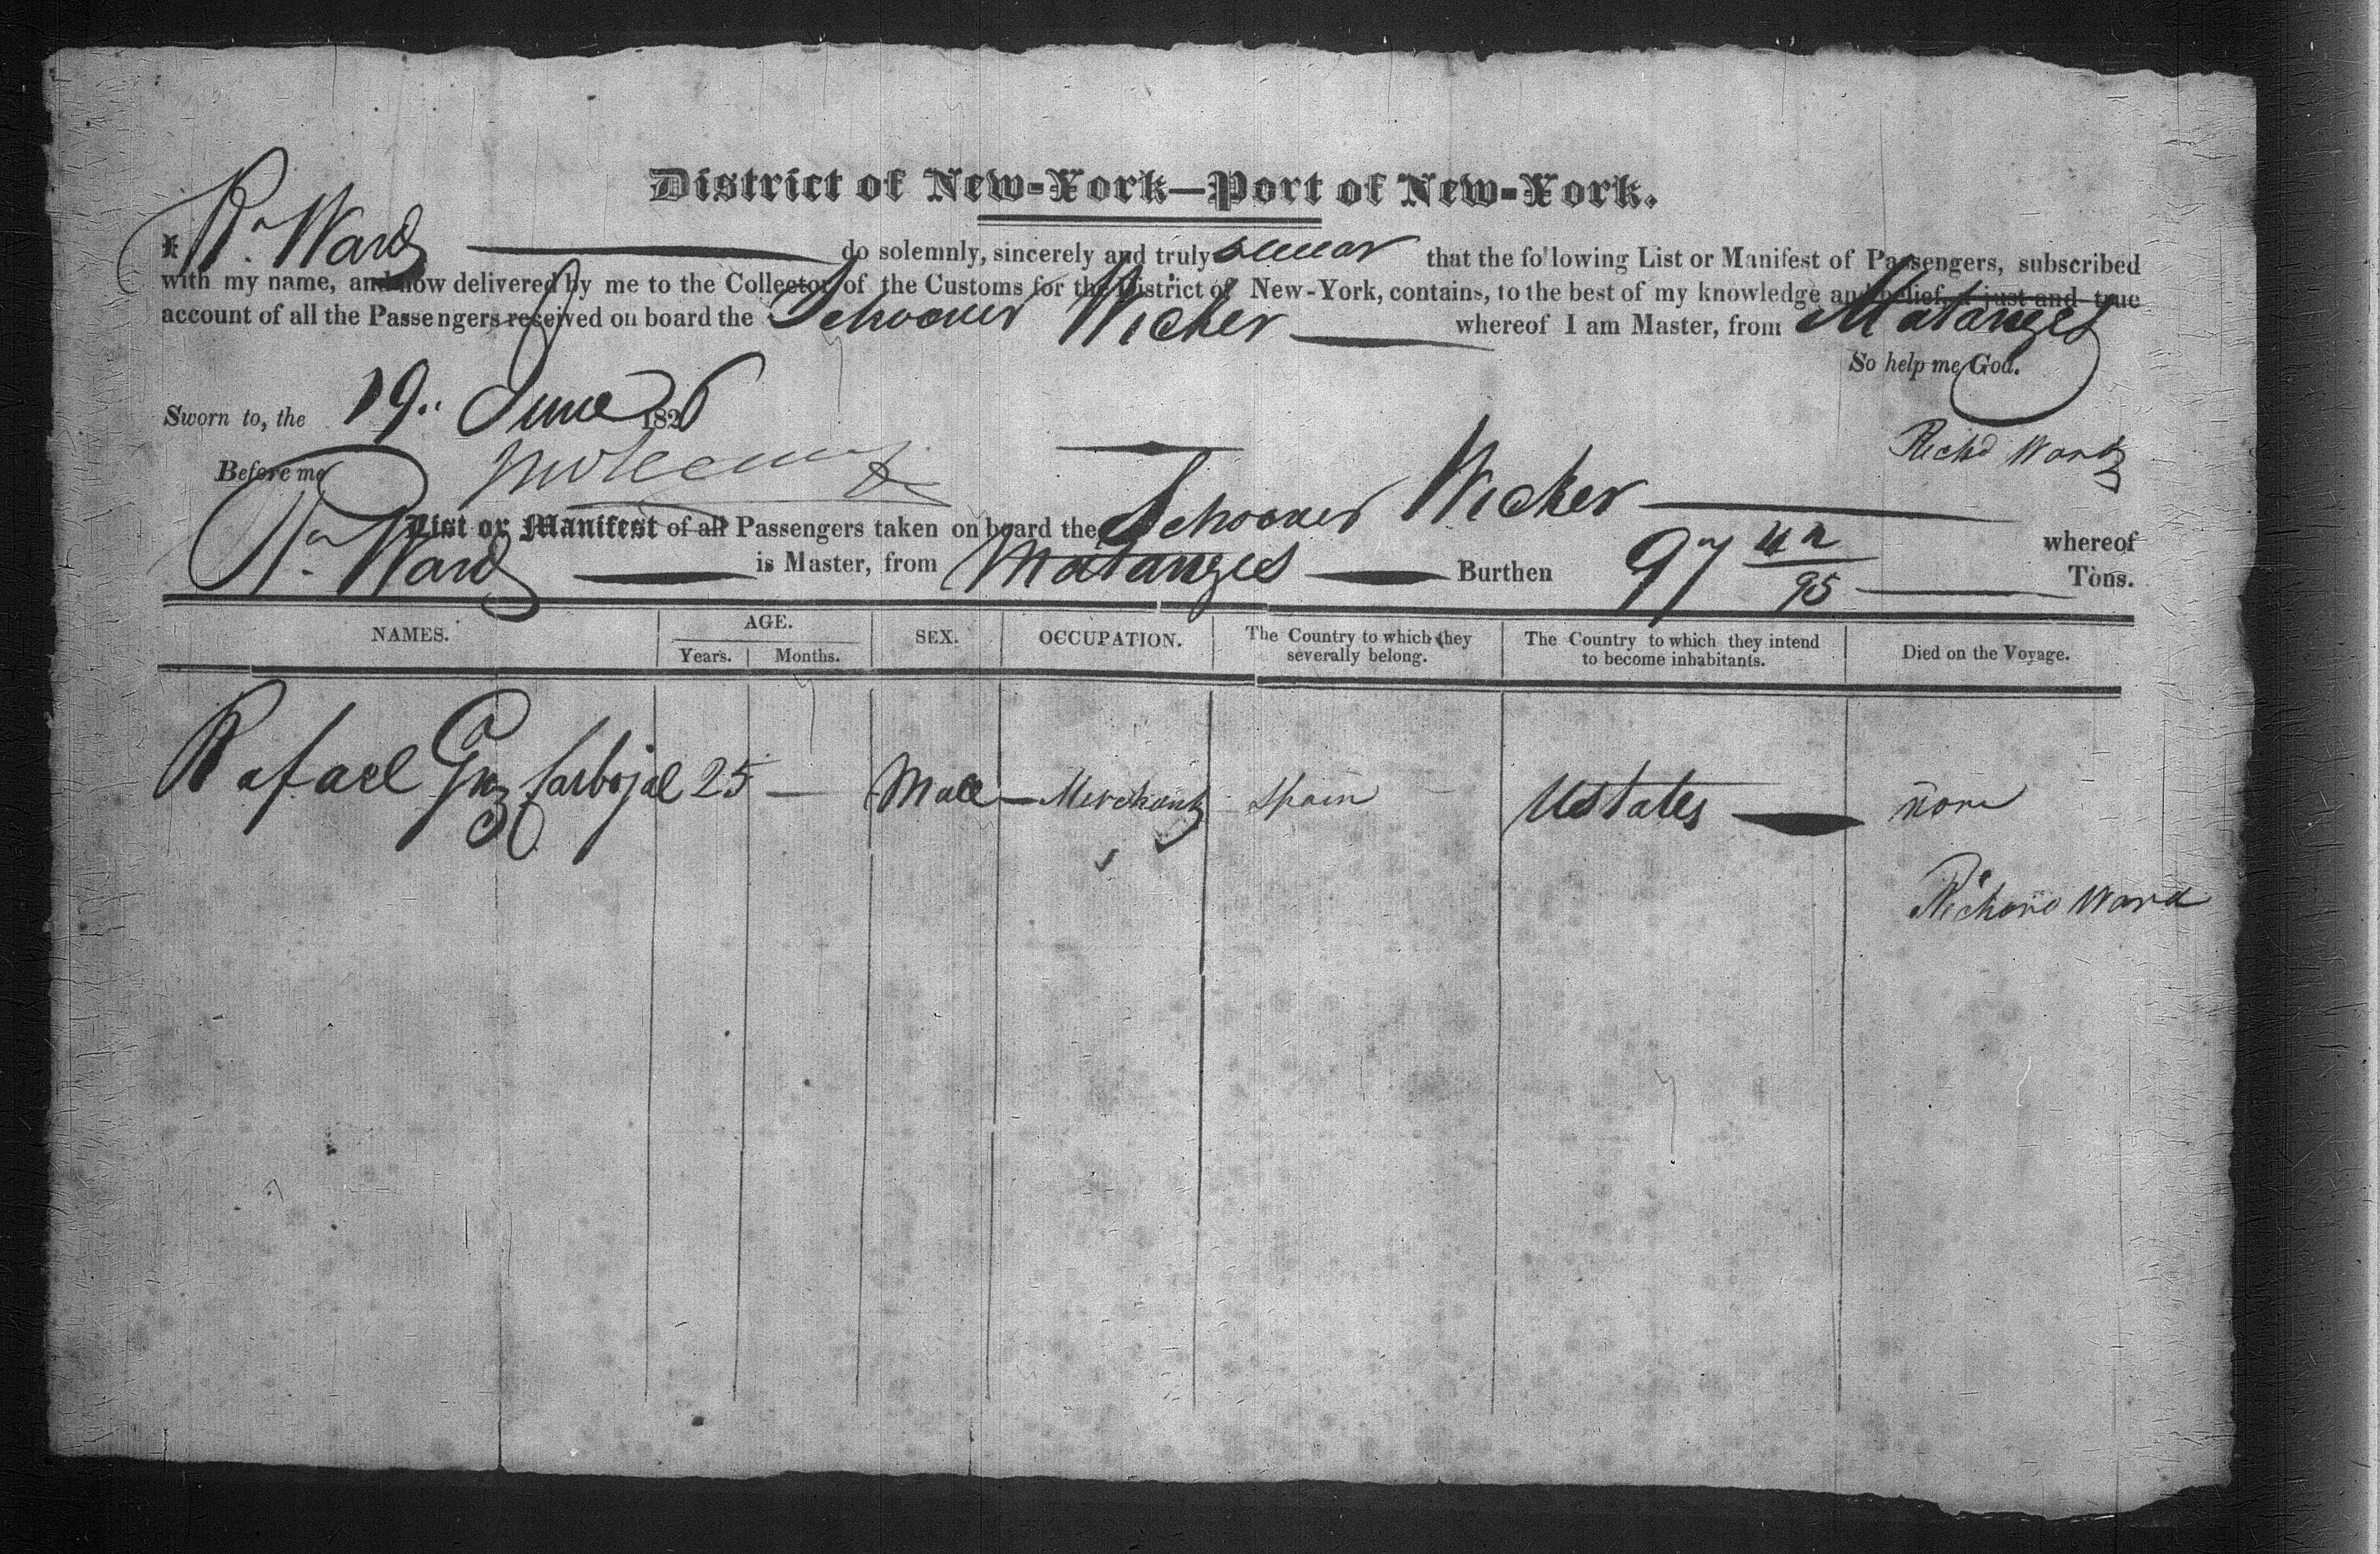 District of New-York—Port of New-York.
I Rd. Ward do solemnly, sincerely and truly swear that the following List or Manifest of Passengers, subscribed
with my name, and now delivered by me to the Collector of the Customs for the District of New-York, contains, to the best of my knowledge and belief, a just and true
account of all the Passengers received on board the Schooner Wicker whereof I am Master, from Matanzes
So help me God.
Sworn to, the 19.. June 1826
Richd Ward
Before me
List or Manifest of all Passengers taken on board the Schooner Wicker whereof
Rd. Ward is Master, from Matanzes Burthen 97 42/95 Tons.
NAMES. AGE. SEX. OCCUPATION. The Country to which they severally belong. The Country to which they intend to become inhabitants. Died on the Voyage.
Years. Months.
Rafael Gnz Carbajal 25 — Male — Merchant Spain UStates — none
Richard Ward